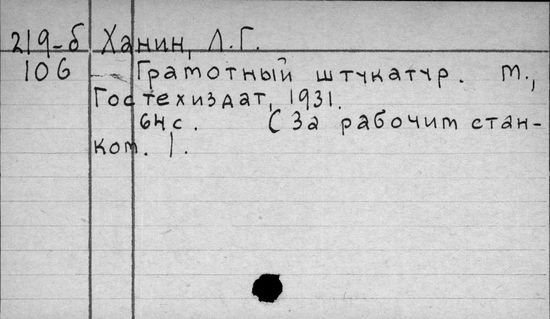 219-б Ханин, Л.Г.
106 Грамотный штукатур. М.,
Гостехиздат, 1931.
64 с. (За рабочим стан-
ком.).